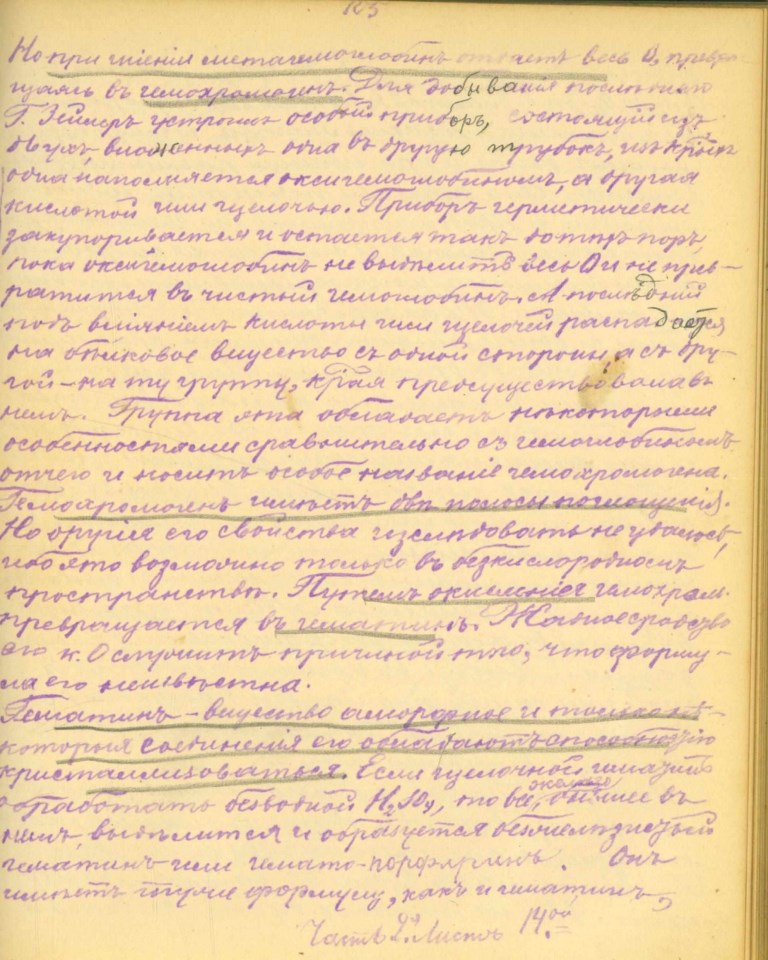 125
Но при гніеніи метагемоглобинъ отдаетъ весь О, превра-
щаясь въ гемохромогенъ. Для добыванія послѣдняго
Г. Зейлеръ устроилъ особый приборъ, состоящій изъ
двухъ, вложенныхъ одна въ другую трубокъ, изъ кр̃ыхъ
одна наполняется оксигемоглобиномъ, а другая
кислотой или щелочью. Приборъ герметически
закупоривается и остается такъ до тѣхъ поръ,
пока оксигемоглобинъ не выдѣлитъ весь О и не прев-
ратится въ чистый гемоглобинъ. А послѣдній
подъ вліяніемъ кислоты или щелочей распадается
на бѣлковое вещество съ одной стороны, а съ дру-
гой – на ту группу, кр̃ая предсуществовала въ
немъ. Группа эта обладаетъ нѣкоторыми
особенностями сравнительно съ гемоглобиномъ
отчего и носитъ особое названіе гемохромогена.
Гемохромогенъ имѣетъ двѣ полосы поглощенія.
Но другія его свойства изслѣдовать не удалось,
ибо это возможно только въ безкислородномъ
пространствѣ. Путемъ окисленія гемохром.
превращается въ гематинъ. Жадное сродство
его к. О служитъ причиной тто, что форму-
ла его неизвѣстна.
Гематинъ – вещество аморфное и только нѣ-
которыя соединенія его обладаютъ способностію
кристаллизоваться. Если щелочной гематинъ
обработать безводной H₂SO₄, то все желѣзо, бывшее въ
немъ, выдѣлится и образуется безжелѣзистый
гематинъ или гемато-порфиринъ. Онъ
имѣетъ такую формулу, какъ и гематинъ,
Часть 2я Листъ 14ый